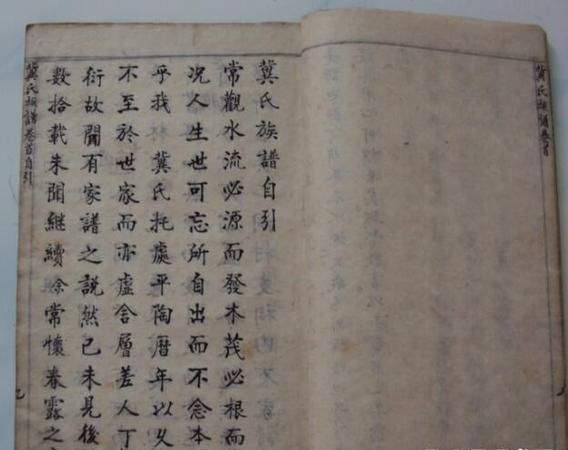 冀氏族譜自引
常觀水流必源而發木茂必根而
況人生世可忘所自出而不念本
乎我 冀氏托處平陶曆年以
不至於世家而亦虛舍層差人丁
衍故聞有家譜之說然已未見後
數拾載未聞繼續余常懷春露之
冀氏族譜卷首自引
冀氏族譜卷首